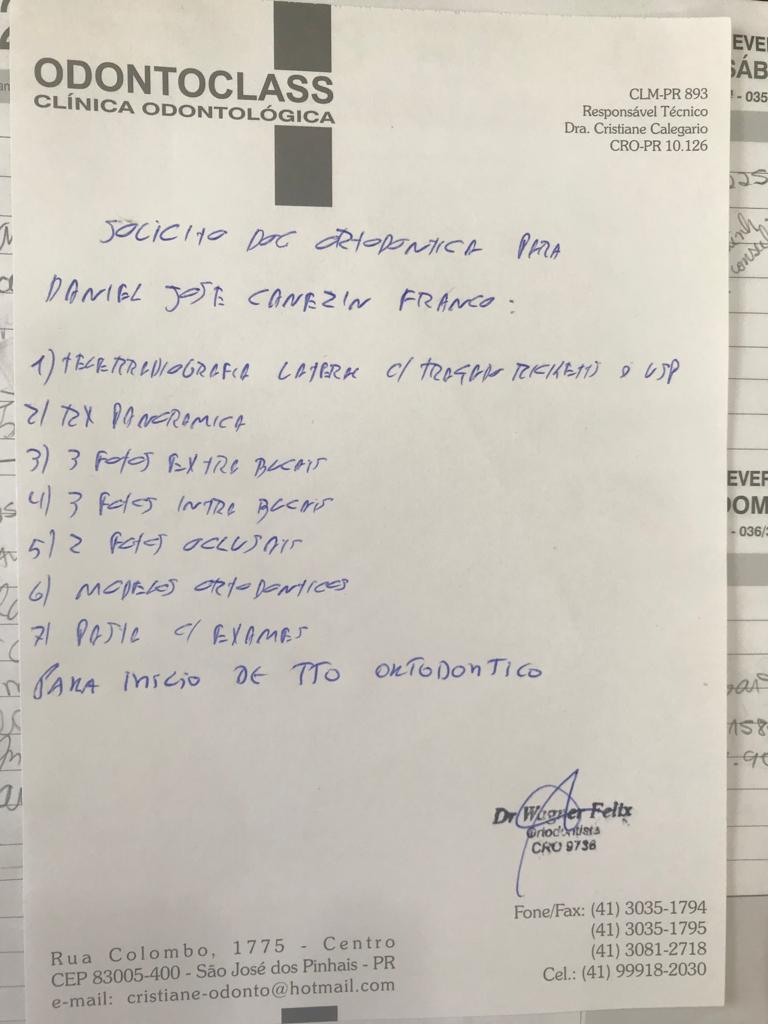 ODONTOCLASS
CLÍNICA ODONTOLÓGICA
CLM-PR 893
Responsável Técnico
Dra. Cristiane Calegario
CRO-PR 10.126
SOLICITO DOC ORTODONTICA PARA
DANIEL JOSE CANEZIN FRANCO:
1) TELERRADIOGRAFIA LATERAL C/ TRAÇADO RICKETTS E USP
2) RX PANORAMICA
3) 3 FOTOS EXTRA BUCAIS
4) 3 FOTOS INTRA BUCAIS
5) 2 FOTOS OCLUSAIS
6) MODELOS ORTODONTICOS
7) PASTA C/ EXAMES
PARA INICIO DE TTO ORTODONTICO
Dr Wagner Felix
Ortodontista
CRO 9736
Fone/Fax: (41) 3035-1794
(41) 3035-1795
(41) 3081-2718
Cel.: (41) 99918-2030
Rua Colombo, 1775 - Centro
CEP 83005-400 - São José dos Pinhais - PR
e-mail: cristiane-odonto@hotmail.com
EVE
SÁB
- 035
EVER
DOM
- 036/